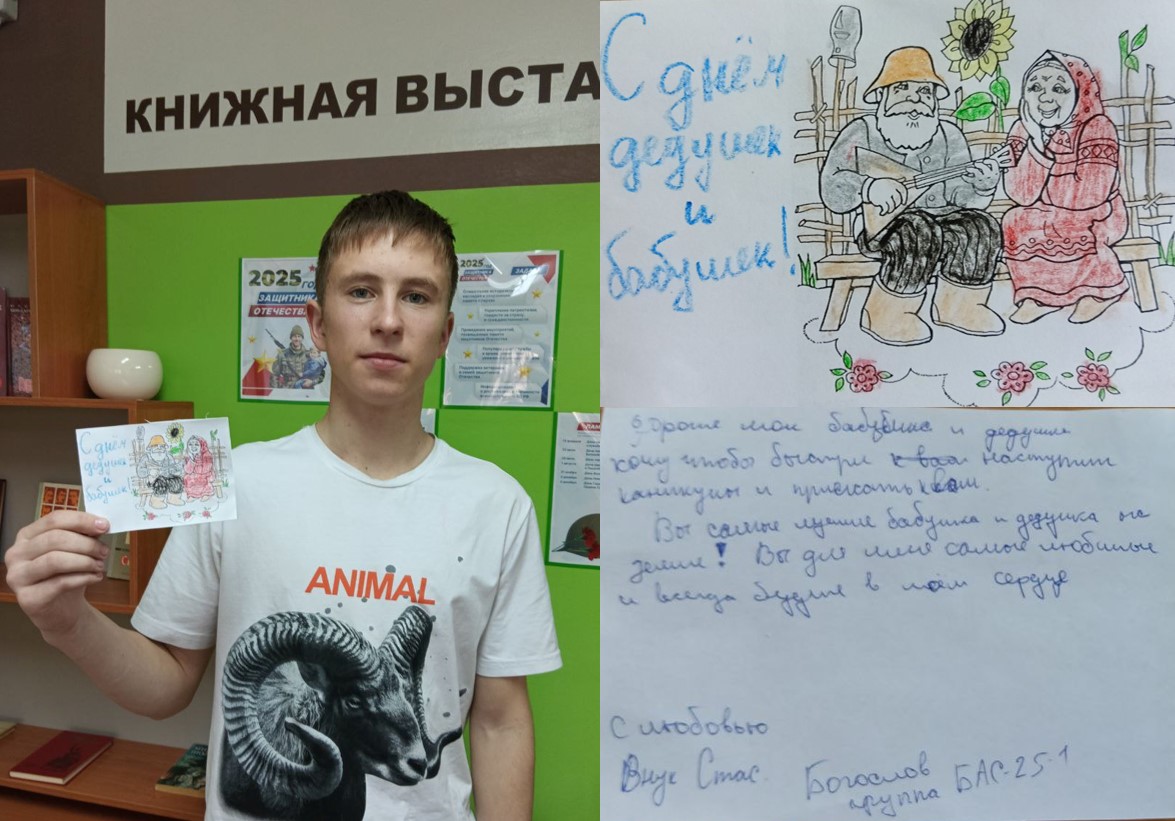 КНИЖНАЯ ВЫСТА
2025 ГОД
ЗАЩИТНИКА
ОТЕЧЕСТВА
2025
ЗАЩИТНИКА
ОТЕЧЕСТВА
ЗАДАЧИ
С днём
дедушек
и
бабушек!
ANIMAL
С днём
дедушек
и
бабушек!
Дорогие мои бабушка и дедушка
хочу чтобы быстрее наступили
каникулы и приехать к вам.
Вы самые лучшие бабушка и дедушка на
земле! Вы для меня самые любимые
и всегда будете в моём сердце
С любовью
Внук Стас. Богослов
группа БАС-25-1